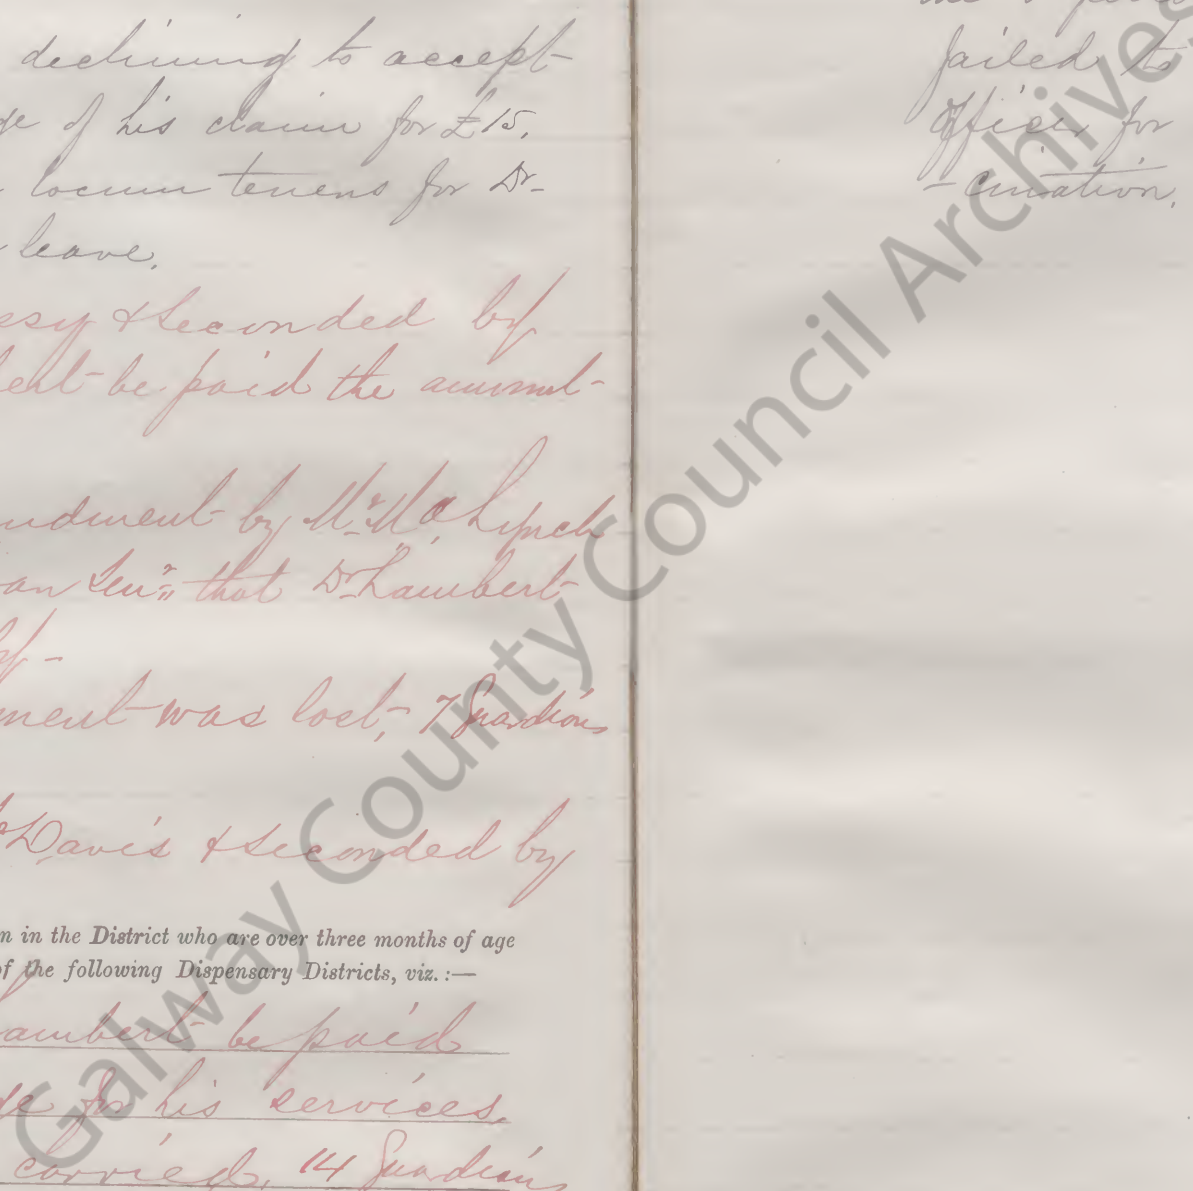 declining to accept
of his claim for £15.
locum tenens for Dr
leave.
& Seconded by
be paid the amount
by Mr. M. O. Lynch
an Senr. that Dr. Lambert
was lost, 7 Guardians
Davis & Seconded by
n in the District who are over three months of age
of the following Dispensary Districts, viz. :—
ambert be paid
for his services.
carried, 14 Guardians
failed to
officer for
- cination.
Galway County Council Archives